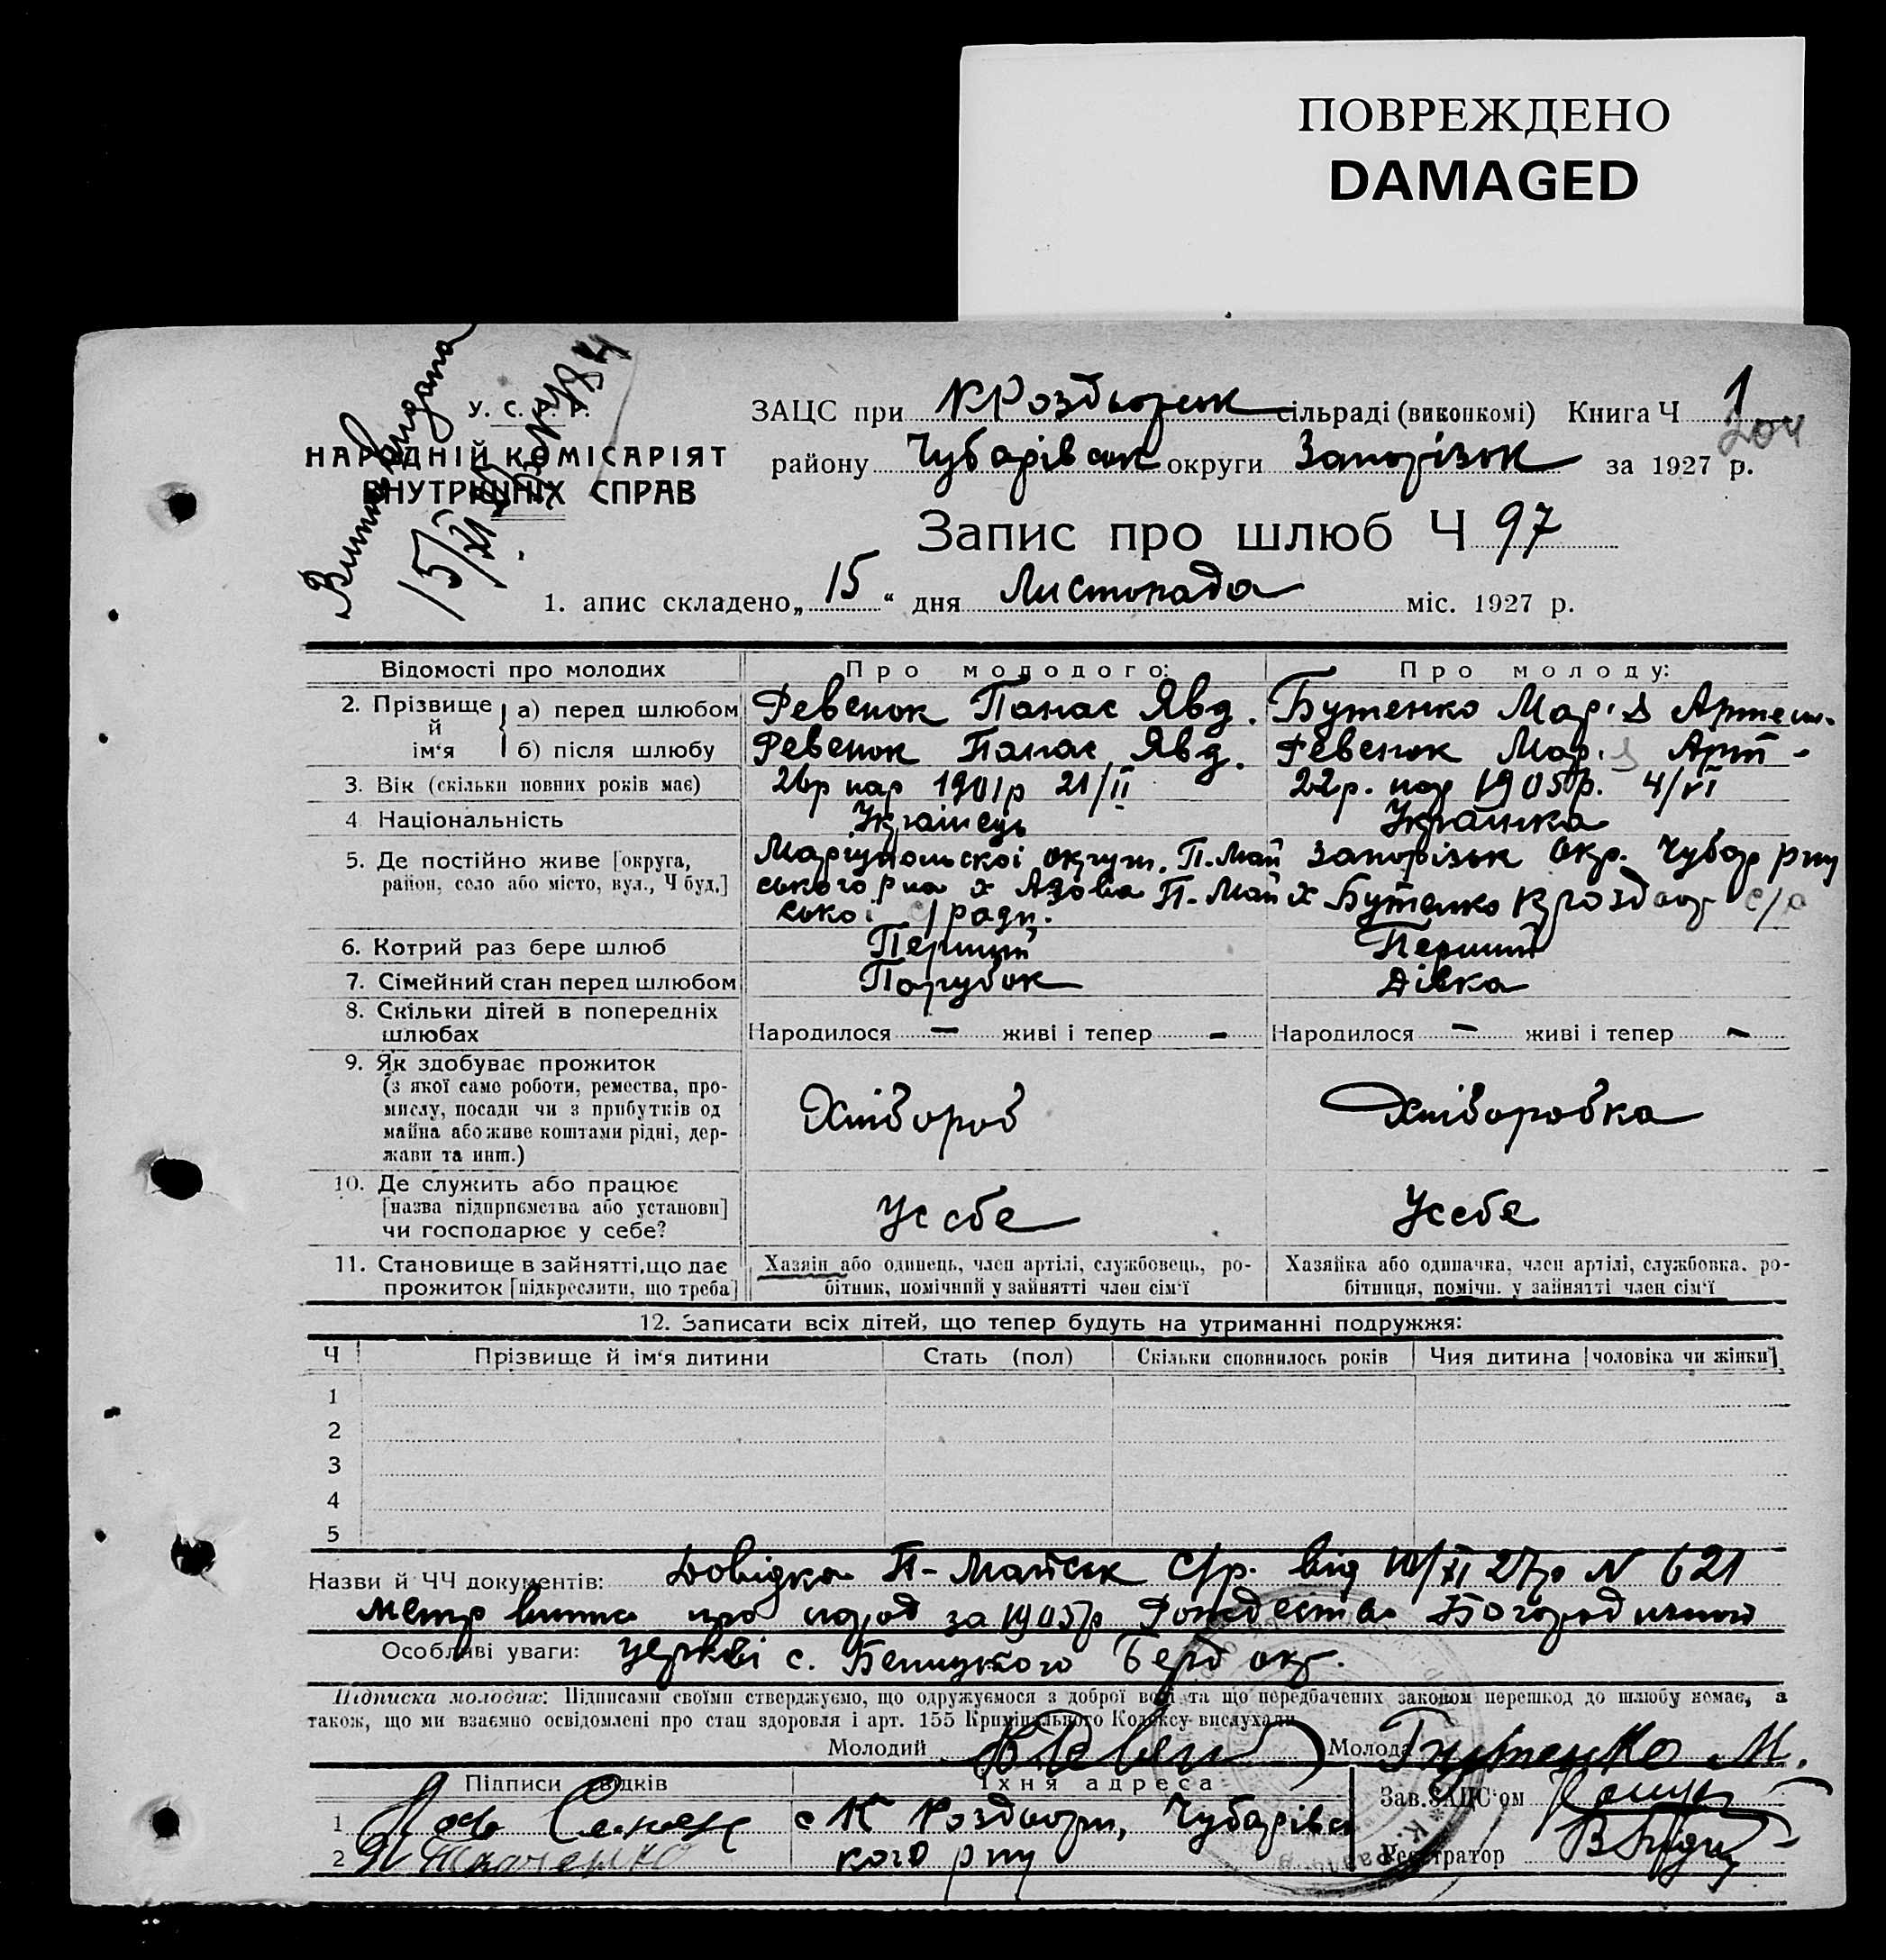 ПОВРЕЖДЕНО
DAMAGED
У. С. Р. Р.
НАРОДНІЙ КОМІСАРІЯТ
ВНУТРІШНІХ СПРАВ
Витяг видана
15/XI
ЗАЦС при К Роздорск сільраді (виконкомі) Книга Ч 1
204
району Чубарівськ округи Запорізьк за 1927 р.
Запис про шлюб Ч 97
1. апис складено „15“ дня Листопада міс. 1927 р.
Відомості про молодих Про молодого: Про молоду:
2. Прізвище й ім‘я а) перед шлюбом Ревенок Панас Явд. Бутенко Марія Артем.
б) після шлюбу Ревенок Панас Явд. Ревенок Марія Арт-
3. Вік (скільки повних років має) 26р нар 1901р 21/II 22р. нар 1905р. 4/VI
4 Національність Українець Українка
5. Де постійно живе [округа, Маріупольскоі округи. П.-Май Запорізьк окр. Чубар рну
район, село або місто, вул., Ч буд.] ського рна х Азова П.-Май х Бутенко К роздор с/р
ськоі с/ради.
6. Котрий раз бере шлюб Перший Перший
7. Сімейний стан перед шлюбом Парубок Дівка
8. Скільки дітей в попередніх
шлюбах Народилося – живі і тепер – Народилося – живі і тепер –
9. Як здобуває прожиток
(з якої саме роботи, ремества, про-
мислу, посади чи з прибутків од
майна або живе коштами рідні, дер-
жави та инш.) Хлібороб Хліборобка
10. Де служить або працює
[назва підприємства або установи]
чи господарює у себе? Усебе Усебе
11. Становище в зайнятті, що дає Хазяїн або одинець, член артілі, службовець, ро- Хазяйка або одиначка, член артілі, службовка, ро-
прожиток [підкреслити, що треба] бітник, помічний у зайнятті член сім‘ї бітниця, помічн. у зайнятті член сім‘ї
12. Записати всіх дітей, що тепер будуть на утриманні подружжя:
Ч Прізвище й ім‘я дитини Стать (пол) Скільки сповнилось років Чия дитина [чоловіка чи жінки]
1
2
3
4
5
Назви й ЧЧ документів: Довідка П-Майськ с/р. від 10/XI 27р N 621
Метр випис про народ за 1905р Рождества Богородичной
Особливі уваги: церкві с. Берд окр.
Підписка молодих: Підписами своїми стверджуємо, що одружуємося з доброї волі та що передбачених законом перешкод до шлюбу немає, а
також, що ми взаємно освідомлені про стан здоровля і арт. 155 Кримінального Кодексу вислухали
Молодий Молода Бутенко М.
Підписи свідків Їхня адреса Зав. ЗАЦС‘ом
1 с К Роздори, Чубарівсь
2 Ткаченко кого рну Реєстратор